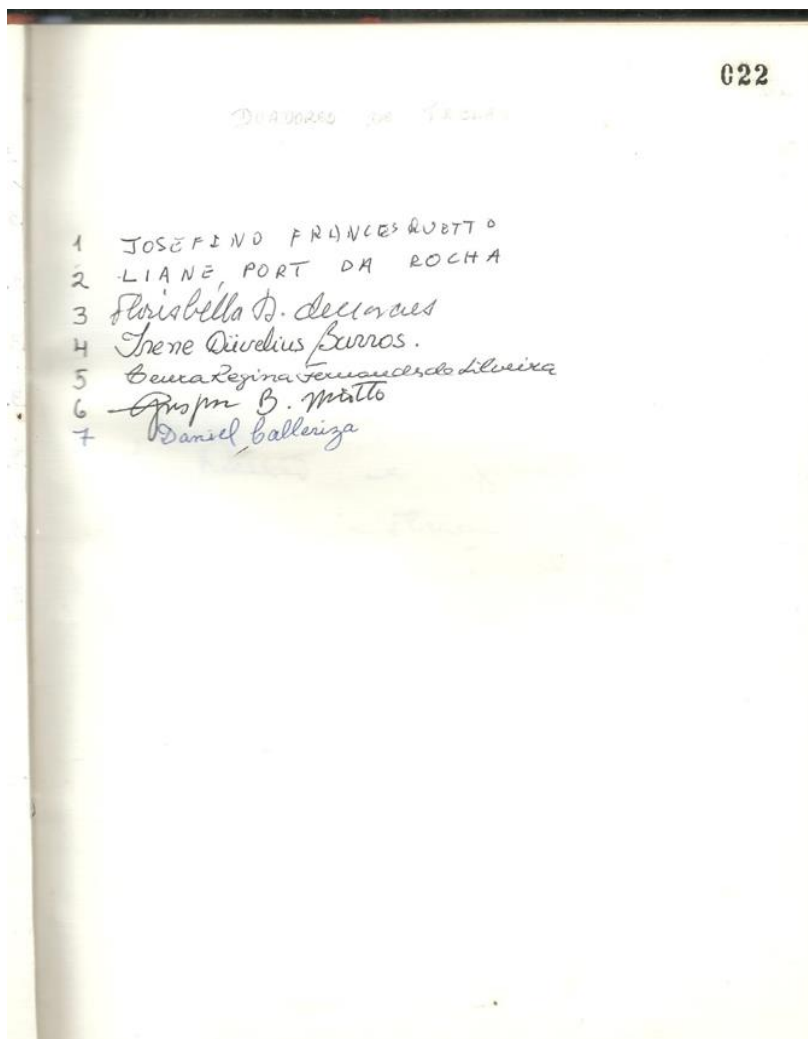 022
DOADORES DE
1 JOSEFINO FRANCESQUETTO
2 LIANE PORT DA ROCHA
3 Florisbella D. de Moraes
4 Irene Düvelius Barros.
5 Regina Fernandes da Silveira
6 B.
7 Daniel Calleriza